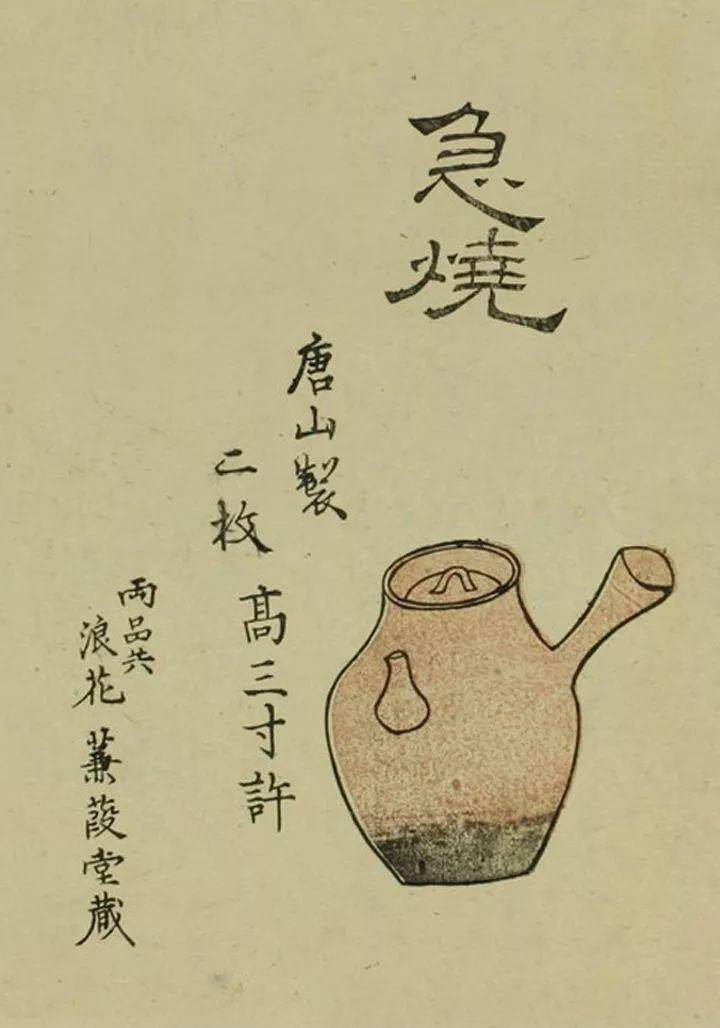 急燒
唐山製
二枚
高三寸許
両品共
浪花
蒹葭堂蔵